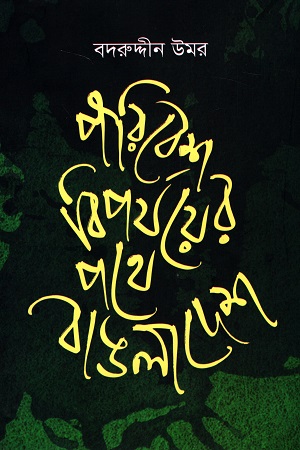 বদরুদ্দীন উমর
পরিবেশ
বিপর্যয়ের
পথে
বাঙলাদেশ